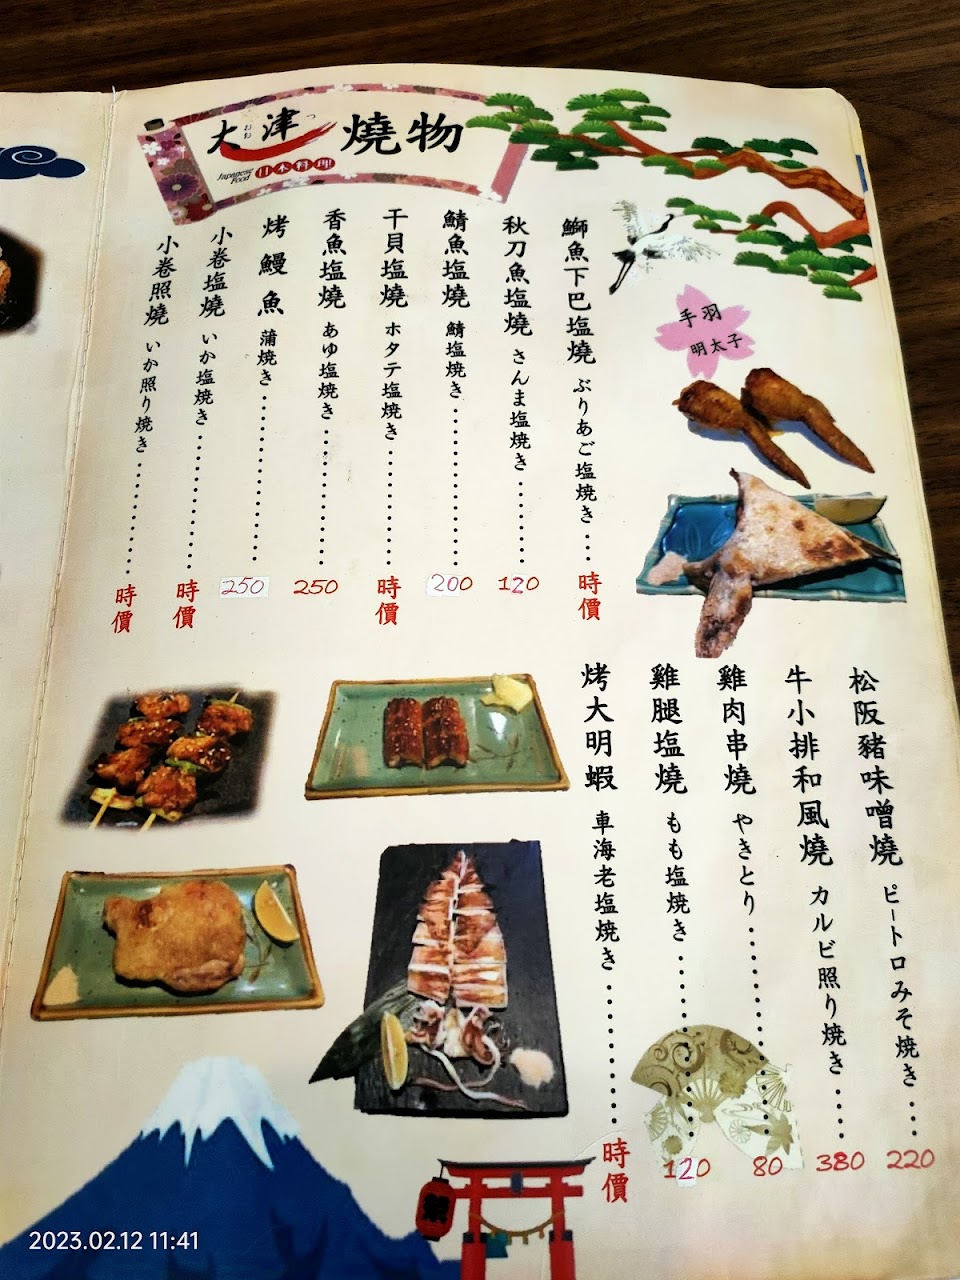 大津 燒物
おお つ
Japanese Food 日本料理
手羽
明太子
鰤魚下巴塩燒 ぶりあご塩焼き 時價
秋刀魚塩燒 さんま塩焼き 120
鯖魚塩燒 鯖塩焼き 200
干貝塩燒 ホタテ塩焼き 時價
香魚塩燒 あゆ塩焼き 250
烤鰻魚 蒲焼き 250
小卷塩燒 いか塩焼き 時價
小卷照燒 いか照り焼き 時價
松阪豬味噌燒 ピートロみそ焼き 220
牛小排和風燒 カルビ照り焼き 380
雞肉串燒 やきとり 80
雞腿塩燒 もも塩焼き 120
烤大明蝦 車海老塩焼き 時價
2023.02.12 11:41